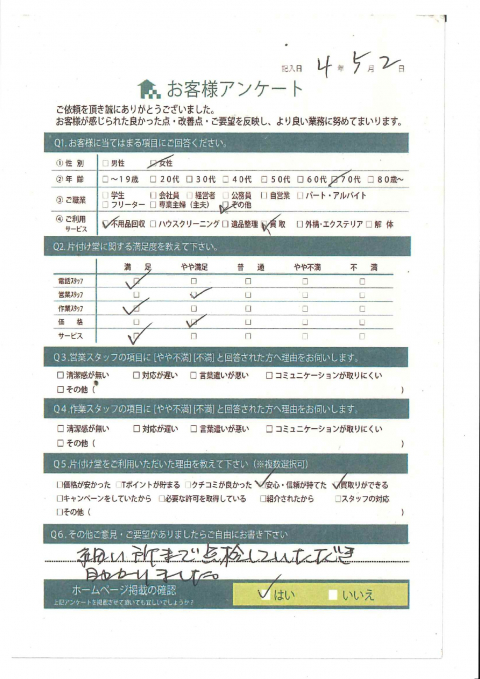 記入日 4 年 5 月 2 日
お客様アンケート
ご依頼を頂き誠にありがとうございました。
お客様が感じられた良かった点・改善点・ご要望を反映し、より良い業務に努めてまいります。
Q1.お客様に当てはまる項目にご回答ください。
①性別 □男性 ☑女性
②年齢 □～19歳 □20代 □30代 □40代 □50代 □60代 ☑70代 □80歳～
③ご職業 □学生 □会社員 □経営者 □公務員 □自営業 □パート・アルバイト
□フリーター □専業主婦（主夫） ☑その他
④ご利用サービス ☑不用品回収 □ハウスクリーニング □遺品整理 ☑買取 □外構・エクステリア □解体
Q2.片付け堂に関する満足度を教えて下さい。
満足 やや満足 普通 やや不満 不満
電話スタッフ ☑ □ □ □ □
営業スタッフ □ ☑ □ □ □
作業スタッフ ☑ □ □ □ □
価格 □ ☑ □ □ □
サービス ☑ □ □ □ □
Q3.営業スタッフの項目に[やや不満][不満]と回答された方へ理由をお伺いします。
□清潔感が無い □対応が遅い □言葉遣いが悪い □コミュニケーションが取りにくい
□その他（ ）
Q4.作業スタッフの項目に[やや不満][不満]と回答された方へ理由をお伺いします。
□清潔感が無い □対応が遅い □言葉遣いが悪い □コミュニケーションが取りにくい
□その他（ ）
Q5.片付け堂をご利用いただいた理由を教えて下さい（※複数選択可）
□価格が安かった □Tポイントが貯まる □クチコミが良かった ☑安心・信頼が持てた ☑買取りができる
□キャンペーンをしていたから □必要な許可を取得している □紹介されたから □スタッフの対応
□その他（ ）
Q6.その他ご意見・ご要望がありましたらご自由にお書き下さい
細い所まで点検していただき
助かりました。
ホームページ掲載の確認 ☑はい □いいえ
上記アンケートを掲載させて頂いても宜しいでしょうか？